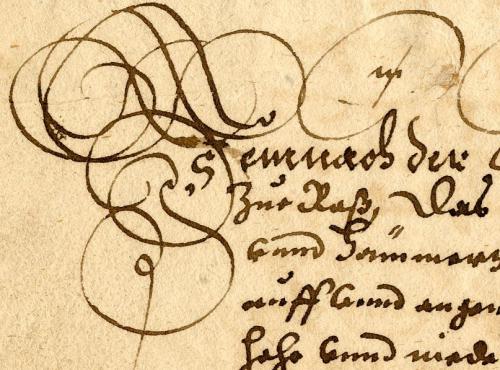 Demnach der
Zue Raß, das
vnnd Hammer
auff vnnd angen
hohe vnnd niede